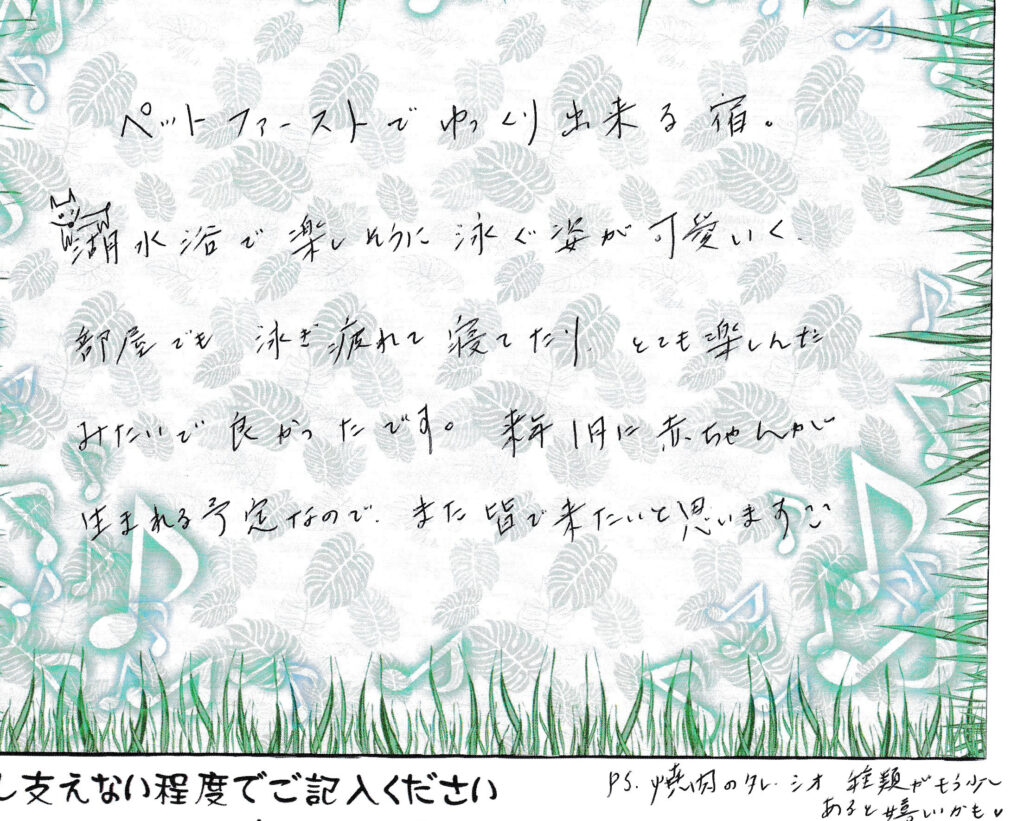 ペットファーストでゆっくり出来る宿。
湖水浴で楽しそうに泳ぐ姿が可愛いく、
部屋でも泳ぎ疲れて寝てたり、とても楽しんだ
みたいで良かったです。来年1月に赤ちゃんが
生まれる予定なので、また皆で来たいと思います
し支えない程度でご記入ください
PS. 焼肉のタレ・シオ 種類がもう少し
あると嬉しいかも♥